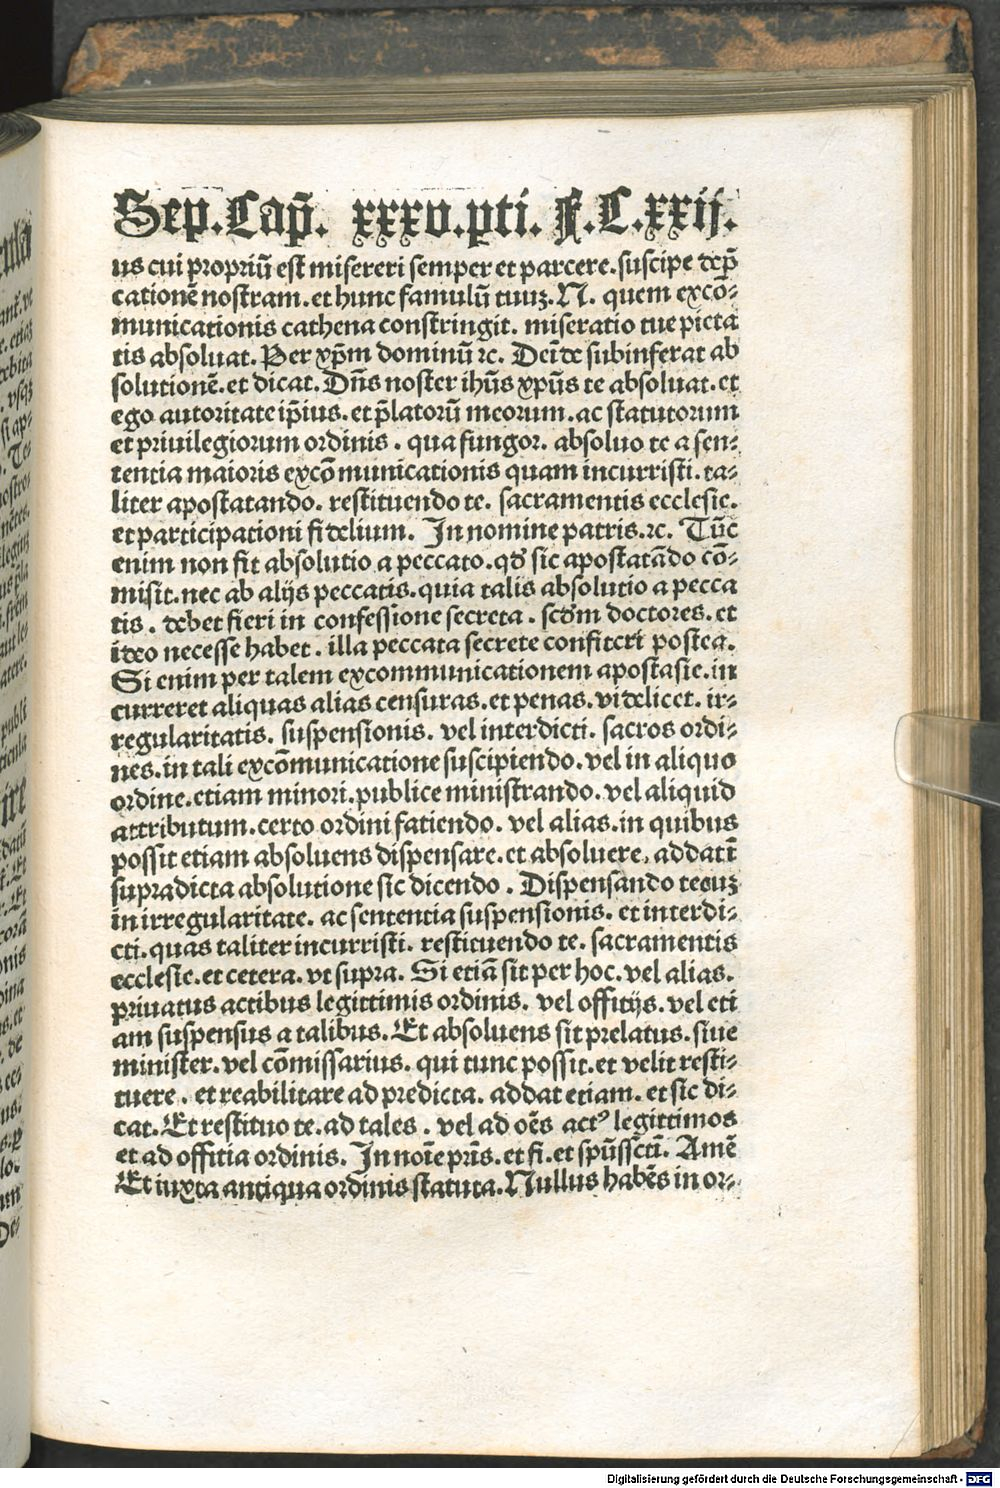 Sep. Cap̃. xxxv. pti. F. C. xxij.
us cui propriũ est misereri semper et parcere. suscipe dep̃
cationẽ nostram. et hunc famulũ tuuꝫ. N. quem excõ⸗
municationis cathena constringit. miseratio tue pieta
tis absoluat. Per xp̃m dominũ ⁊c. Deĩde subinferat ab
solutionẽ. et dicat. Dñs noster ihũs xpũs te absoluat. et
ego autoritate ip̃ius. et p̃latorũ meorum. ac statutorum
et priuilegiorum ordinis. qua fungor. absoluo te a sen⸗
tentia maioris excõmunicationis quam incurristi. ta⸗
liter apostatando. restituendo te. sacramentis ecclesie.
et participationi fidelium. In nomine patris. ⁊c. Tũc
enim non fit absolutio a peccato. qđ sic apostatãdo cõ⸗
misit. nec ab alijs peccatis. quia talis absolutio a pecca
tis. debet fieri in confessione secreta. scđm doctores. et
ideo necesse habet. illa peccata secrete confiteri postea.
Si enim per talem excommunicationem apostasie. in
curreret aliquas alias censuras. et penas. videlicet. ir⸗
regularitatis. suspensionis. vel interdicti. sacros ordi⸗
nes. in tali excõmunicatione suscipiendo. vel in aliquo
ordine. etiam minori. publice ministrando. vel aliquid
attributum. certo ordini fatiendo. vel alias. in quibus
possit etiam absoluens dispensare. et absoluere, addat ĩ
supradicta absolutione sic dicendo. Dispensando tecuꝫ
in irregularitate. ac sententia suspensionis. et interdi⸗
cti. quas taliter incurristi. restituendo te. sacramentis
ecclesie. et cetera. vt supra. Si etiã sit per hoc. vel alias.
priuatus actibus legittimis ordinis. vel offitijs. vel eti
am suspensus a talibus. Et absoluens sit prelatus. siue
minister. vel cõmissarius. qui tunc possit. et velit resti⸗
tuere. et reabilitare ad predicta. addat etiam. et sic di⸗
cat. Et restituo te. ad tales. vel ad oẽs actꝰ legittimos
et ad offitia ordinis. In noĩe pr̃is. et fi. et spũssctĩ. Amẽ
Et iuxta antiqua ordinis statuta. Nullus habẽs in or⸗
Digitalisierung gefördert durch die Deutsche Forschungsgemeinschaft - DFG